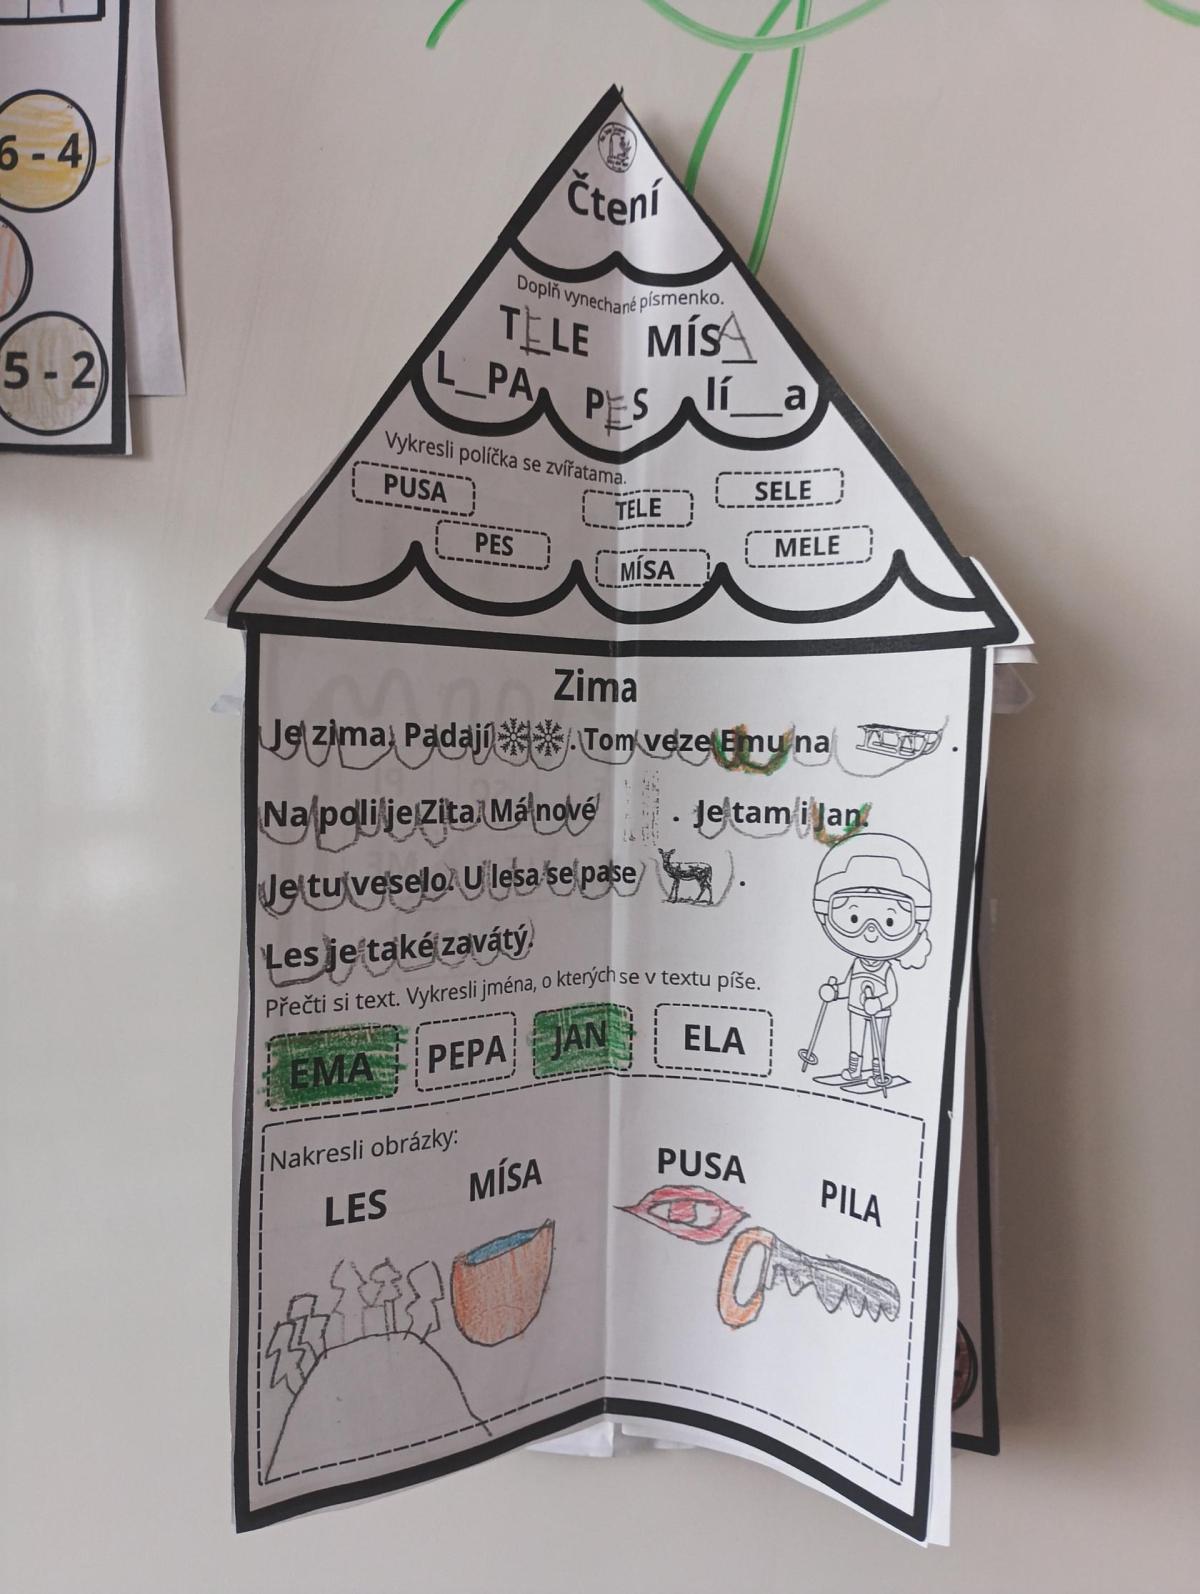 6 - 4
5 - 2
Čtení
Doplň vynechané písmenko.
TELE MÍSA
L_PA PES lí__a
Vykresli políčka se zvířatama.
PUSA TELE SELE
PES MÍSA MELE
Zima
Je zima. Padají . Tom veze Emu na .
Na poli je Zita. Má nové . Je tam i Jan.
Je tu veselo. U lesa se pase .
Les je také zavátý.
Přečti si text. Vykresli jména, o kterých se v textu píše.
EMA PEPA JAN ELA
Nakresli obrázky:
LES MÍSA PUSA PILA